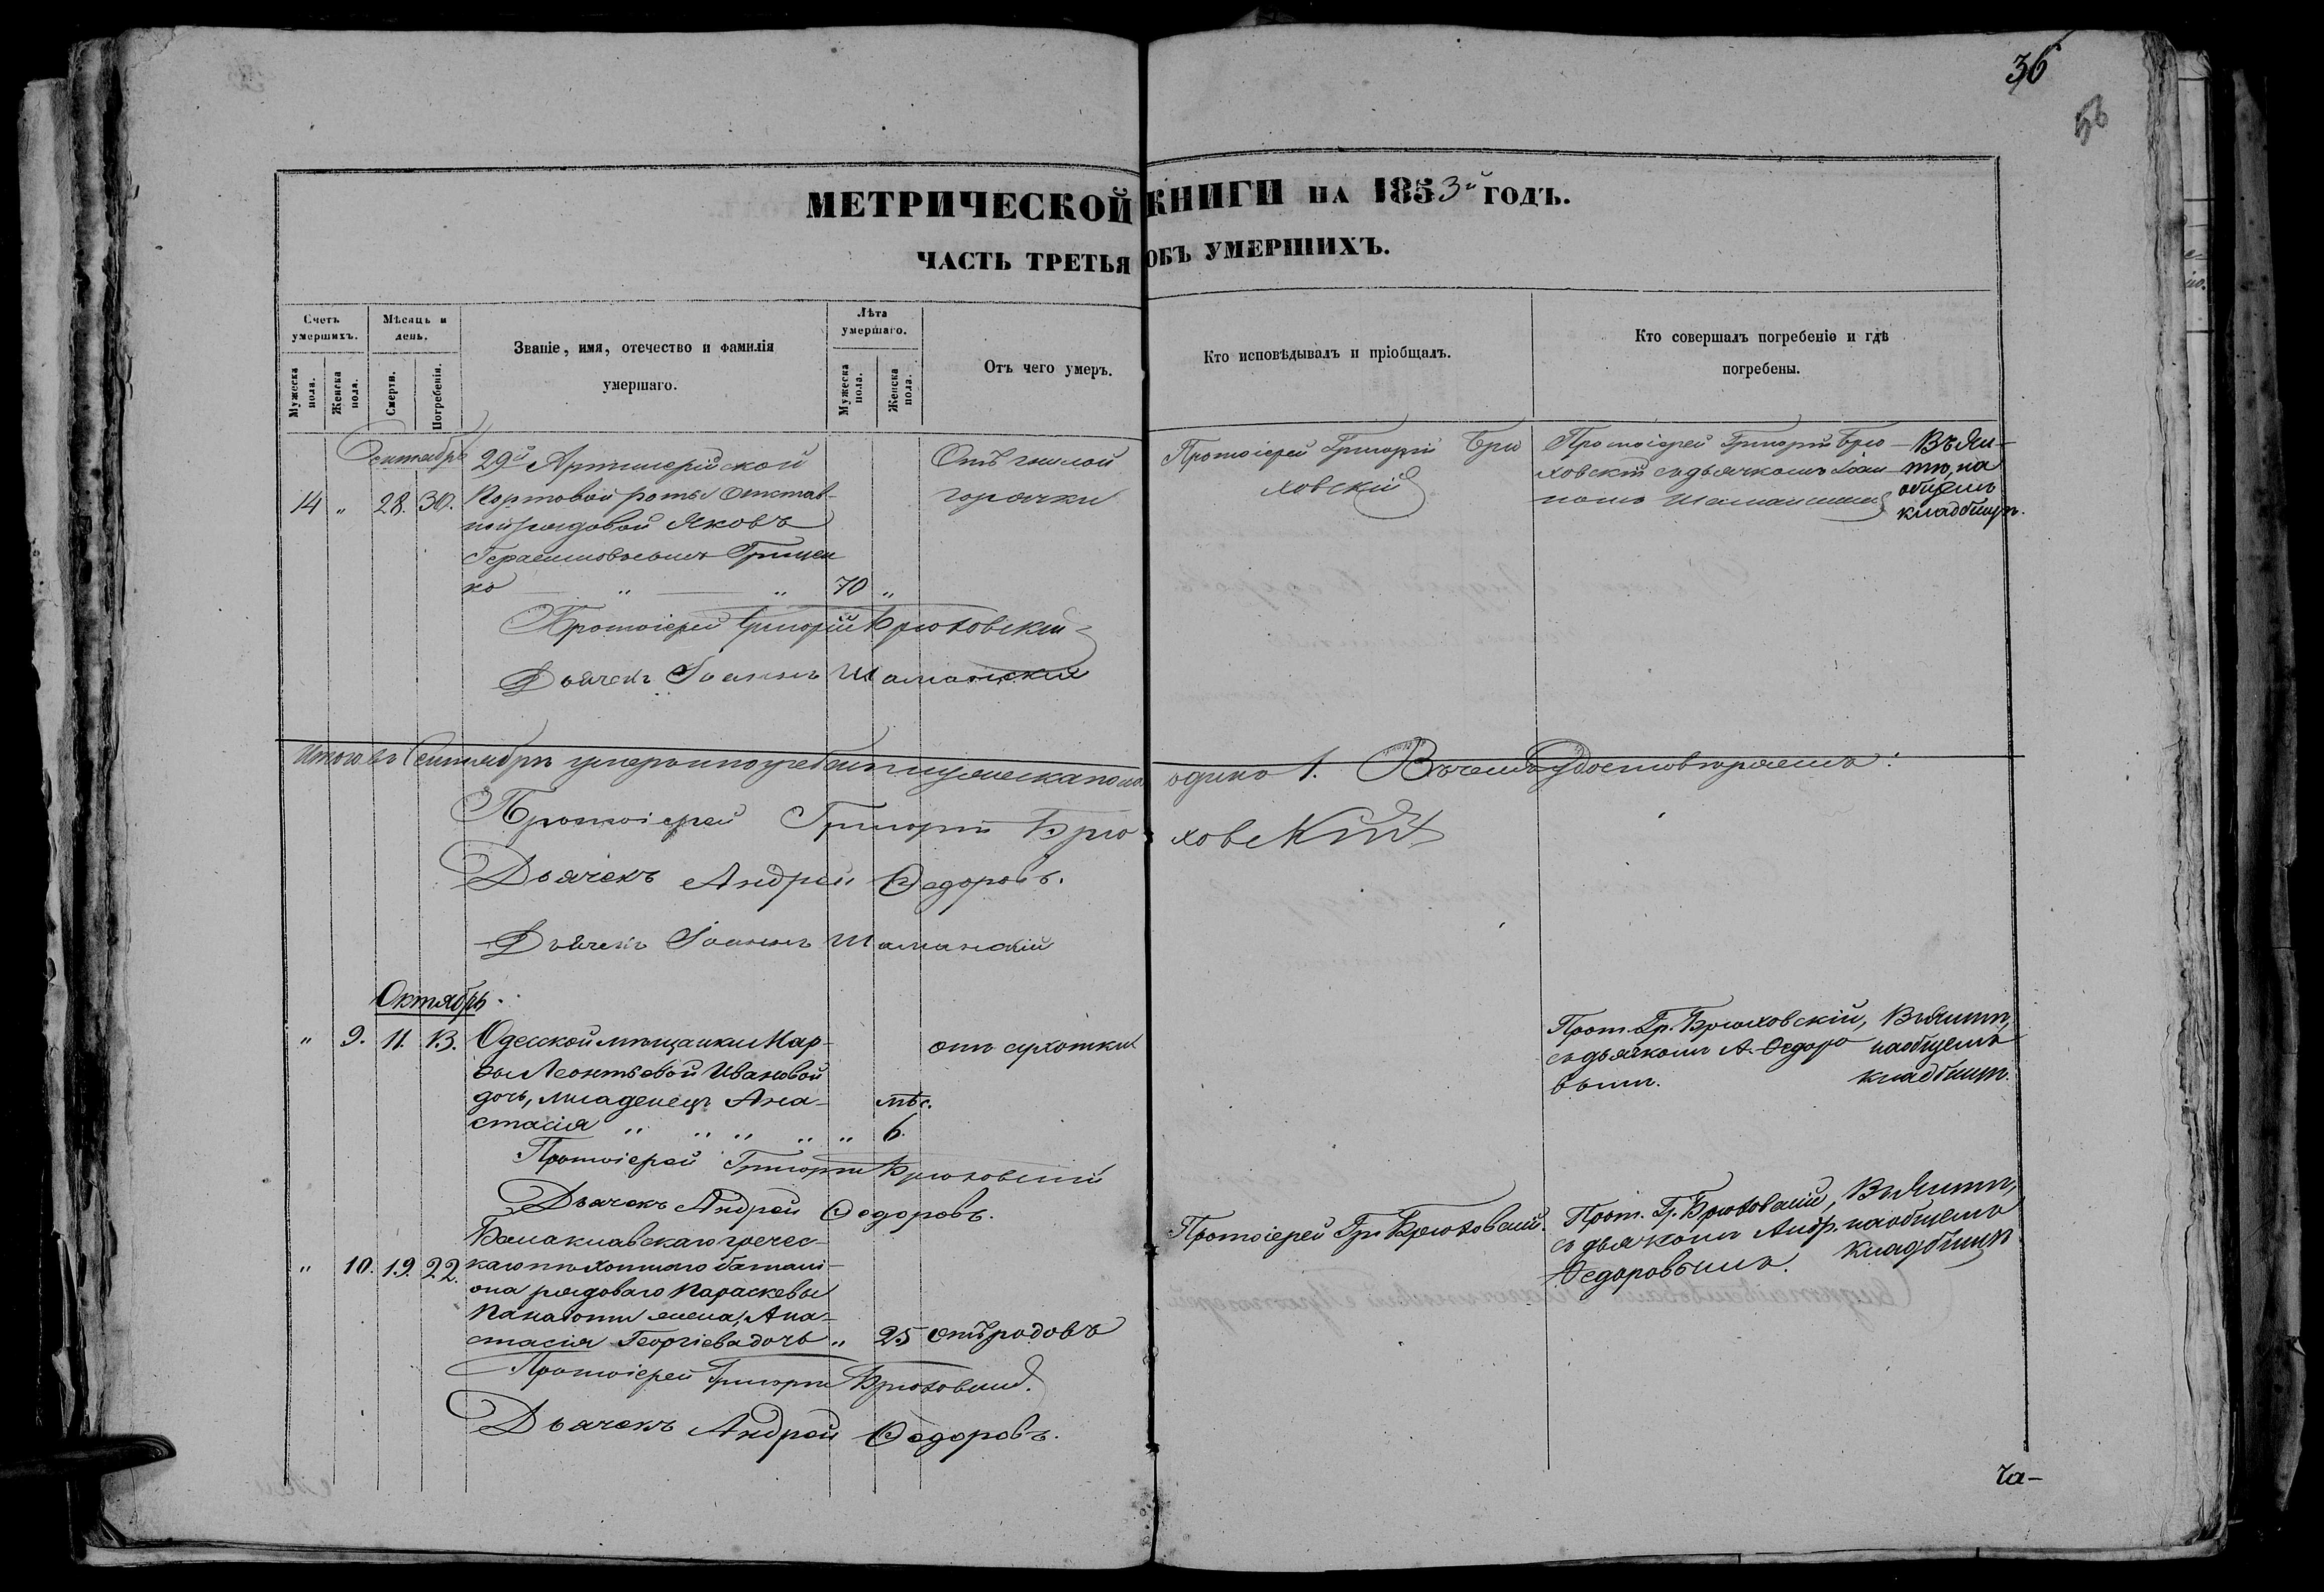 36
МЕТРИЧЕСКОЙ КНИГИ НА 1853й ГОДЪ.
ЧАСТЬ ТРЕТЬЯ ОБЪ УМЕРШИХЪ.
Счетъ умершихъ.
Мужеска пола.
Женска пола.
Мѣсяць и день.
Смерти.
Погребенія.
Званіе, имя, отечество и фамилія
умершаго.
Лѣта умершаго.
Мужеска пола.
Женска пола.
Отъ чего умеръ.
Кто исповѣдывалъ и пріобщалъ.
Кто совершалъ погребеніе и гдѣ
погребены.
Сентябрь
14 " 28. 30.
29й Артиллерійской
Портовой роты отстав-
ный рядовой Яковъ
Герасимовъ сынъ Грицен
ко " " 70 "
Отъ гнилой
горячки
Протоіерей Григорій Брю
ховскій
Протоіерей Григорій Брю-
ховскій съ дьячкомъ Іоан
номъ Шаманскимъ
Въ Ял-
тѣ, на
общемъ
кладбищѣ.
Протоіерей Григорій Брюховскій
Дьячекъ Іоаннъ Шаманскій
Итого въ Сентябрѣ умерло и погребено мужеска пола одинъ 1. Въ чемъ удостовѣряемъ:
Протоіерей Григорій Брюховскій
Дьячекъ Андрей Ѳедоровъ.
Дьячекъ Іоаннъ Шаманскій
Октябрь.
" 9. 11. 13.
Одесской мѣщанки Мар-
ѳы Леонтьевой Ивановой
дочь, младенецъ Ана-
стасія " " " " "
мѣс.
6.
отъ сухотки
Прот. Гр. Брюховскій,
съ дьячкомъ А. Ѳедоро
вымъ.
Въ Ялтѣ,
на общемъ
кладбищѣ.
Протоіерей Григорій Брюховскій
Дьячекъ Андрей Ѳедоровъ.
" 10. 19. 22.
Балаклавскаго гречес-
каго пѣхотнаго баталі-
она рядоваго Параскевы
Панаіоти жена, Ана-
стасія Георгіева дочь " 25
отъ родовъ
Протоіерей Гр. Брюховскій.
Прот. Гр. Брюховскій,
съ дьячкомъ Андр.
Ѳедоровымъ.
Въ Ялтѣ,
на общемъ
кладбищѣ
Протоіерей Григорій Брюховскій.
Дьячекъ Андрей Ѳедоровъ.